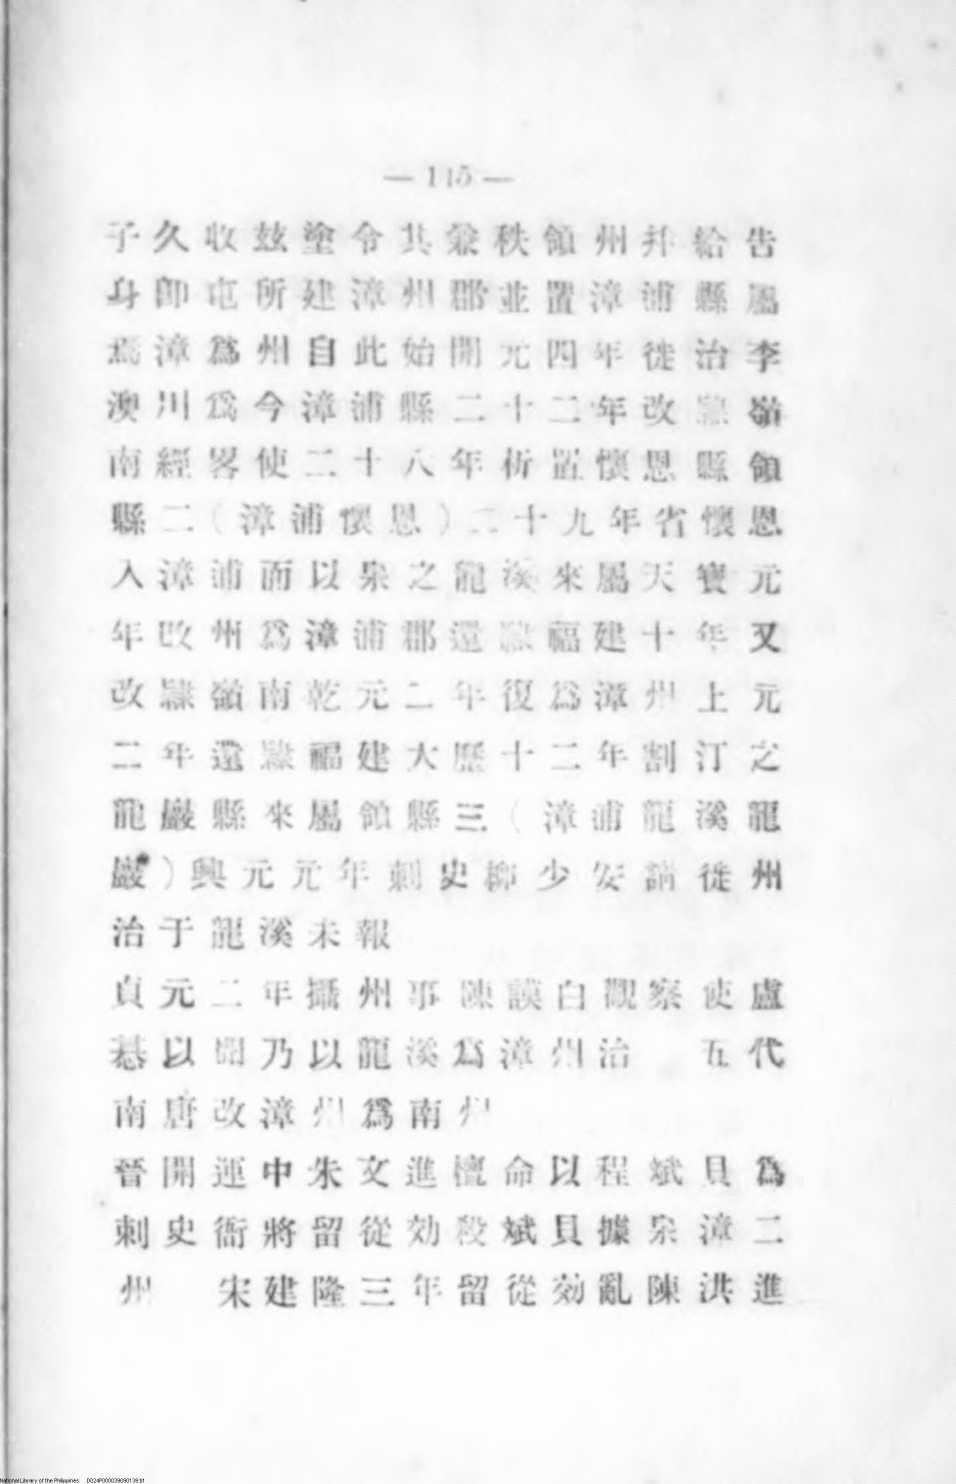 — 115 —
子久收玆塗令其兼秩領州幷給告
身卽屯所建漳州郡並置漳浦縣屬
焉漳爲州自此始開元四年徙治李
澳川爲今漳浦縣二十二年改隸嶺
南經畧使二十八年析置懷恩縣領
縣二（漳浦懷恩）二十九年省懷恩
入漳浦而以泉之龍溪來屬天寶元
年改州爲漳浦郡還隸福建十年又
改隸嶺南乾元二年復爲漳州上元
二年還隸福建大歷十二年割汀之
龍巖縣來屬領縣三（漳浦龍溪龍
巖）興元元年刺史柳少安請徙州
治于龍溪未報
貞元二年攝州事陳謨白觀察使盧
惎以聞乃以龍溪爲漳州治　五代
南唐改漳州爲南州
晉開運中朱文進檀命以程斌貝爲
刺史衙將留從効殺斌貝據泉漳二
州　宋建隆三年留從効亂陳洪進
National Library of the Philippines DG24P000039090139.tif